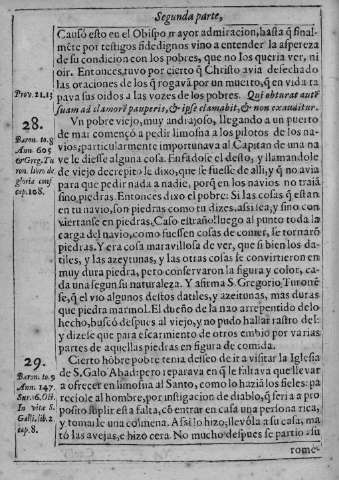 Segunda parte,
Causó esto en el Obispo mayor admiracion, hasta q̃ final-
mẽte por testigos fidedignos vino a entender la aspereza
de su condicion con los pobres, que no los queria ver, ni
oir. Entonces, tuvo por cierto q̃ Christo avia desechado
las oraciones de los q̃ rogavã por un muerto, q̃ en vida ta
pava sus oidos a las vozes de los pobres. Qui obturat aurẽ
suam ad clamorẽ pauperis, & ipse clamabit, & non exaudietur.
Prov. 21. 13
28.
Vn pobre viejo, muy andrajoso, llegando a un puerto
de mar començó a pedir limosna a los pilotos de los na-
vios; particularmente importunava al Capitan de una na-
ve le diesse alguna cosa. Enfadose el desto, y llamandole
de viejo decrepito le dixo, que se fuesse de alli, y q̃ no avia
para que pedir nada a nadie, porq̃ en los navios no traiã
sino piedras. Entonces dixo el pobre: Si las cosas q̃ estan
en tu navio, son piedras como tu dizes, assi sea, y sino con
viertanse en piedras. Caso estraño! luego al punto toda la
carga del navio, como fuessen cosas de comer, se tornarõ
piedras. Y era cosa maravillosa de ver, que si bien los da-
tiles, y las azeytunas, y las otras cosas se convirtieron en
muy dura piedra, pero conservaron la figura y color, ca-
da una segun su naturaleza. Y afirma S. Gregorio Turonẽ
se, q̃ el vio algunos destos datiles, y azeitunas, mas duras
que piedra marmol. El dueño de la nao arrepentido de lo
hecho, buscó despues al viejo, y no pudo hallar rastro del:
y dizese que para escarmiento de otros embió por varias
partes de aquellas piedras en figura de comida.
Baron. to. 8
Ann. 605
& Greg. Tu
ron. libro de
gloria conf
cap. 108.
29.
Cierto hõbre pobre tenia desseo de ir a visitar la Iglesia
de S. Galo Abad: pero reparava en q̃ le faltava que llevar
a ofrecer en limosna al Santo, como lo haziã los fieles: pa
reciole al hombre, por instigacion de diablo, q̃ seria a pro
posito suplir esta falta, cõ entrar en casa una persona rica,
y tomarle una colmena. Assi lo hizo, llevóla a su casa, ma
tó las avejas, e hizo cera. No mucho despues se partio a su
Baron. to. 9
Ann. 747.
Sur. 16. Oct.
In vita S.
Galli, lib. 2.
cap. 8.
rome-